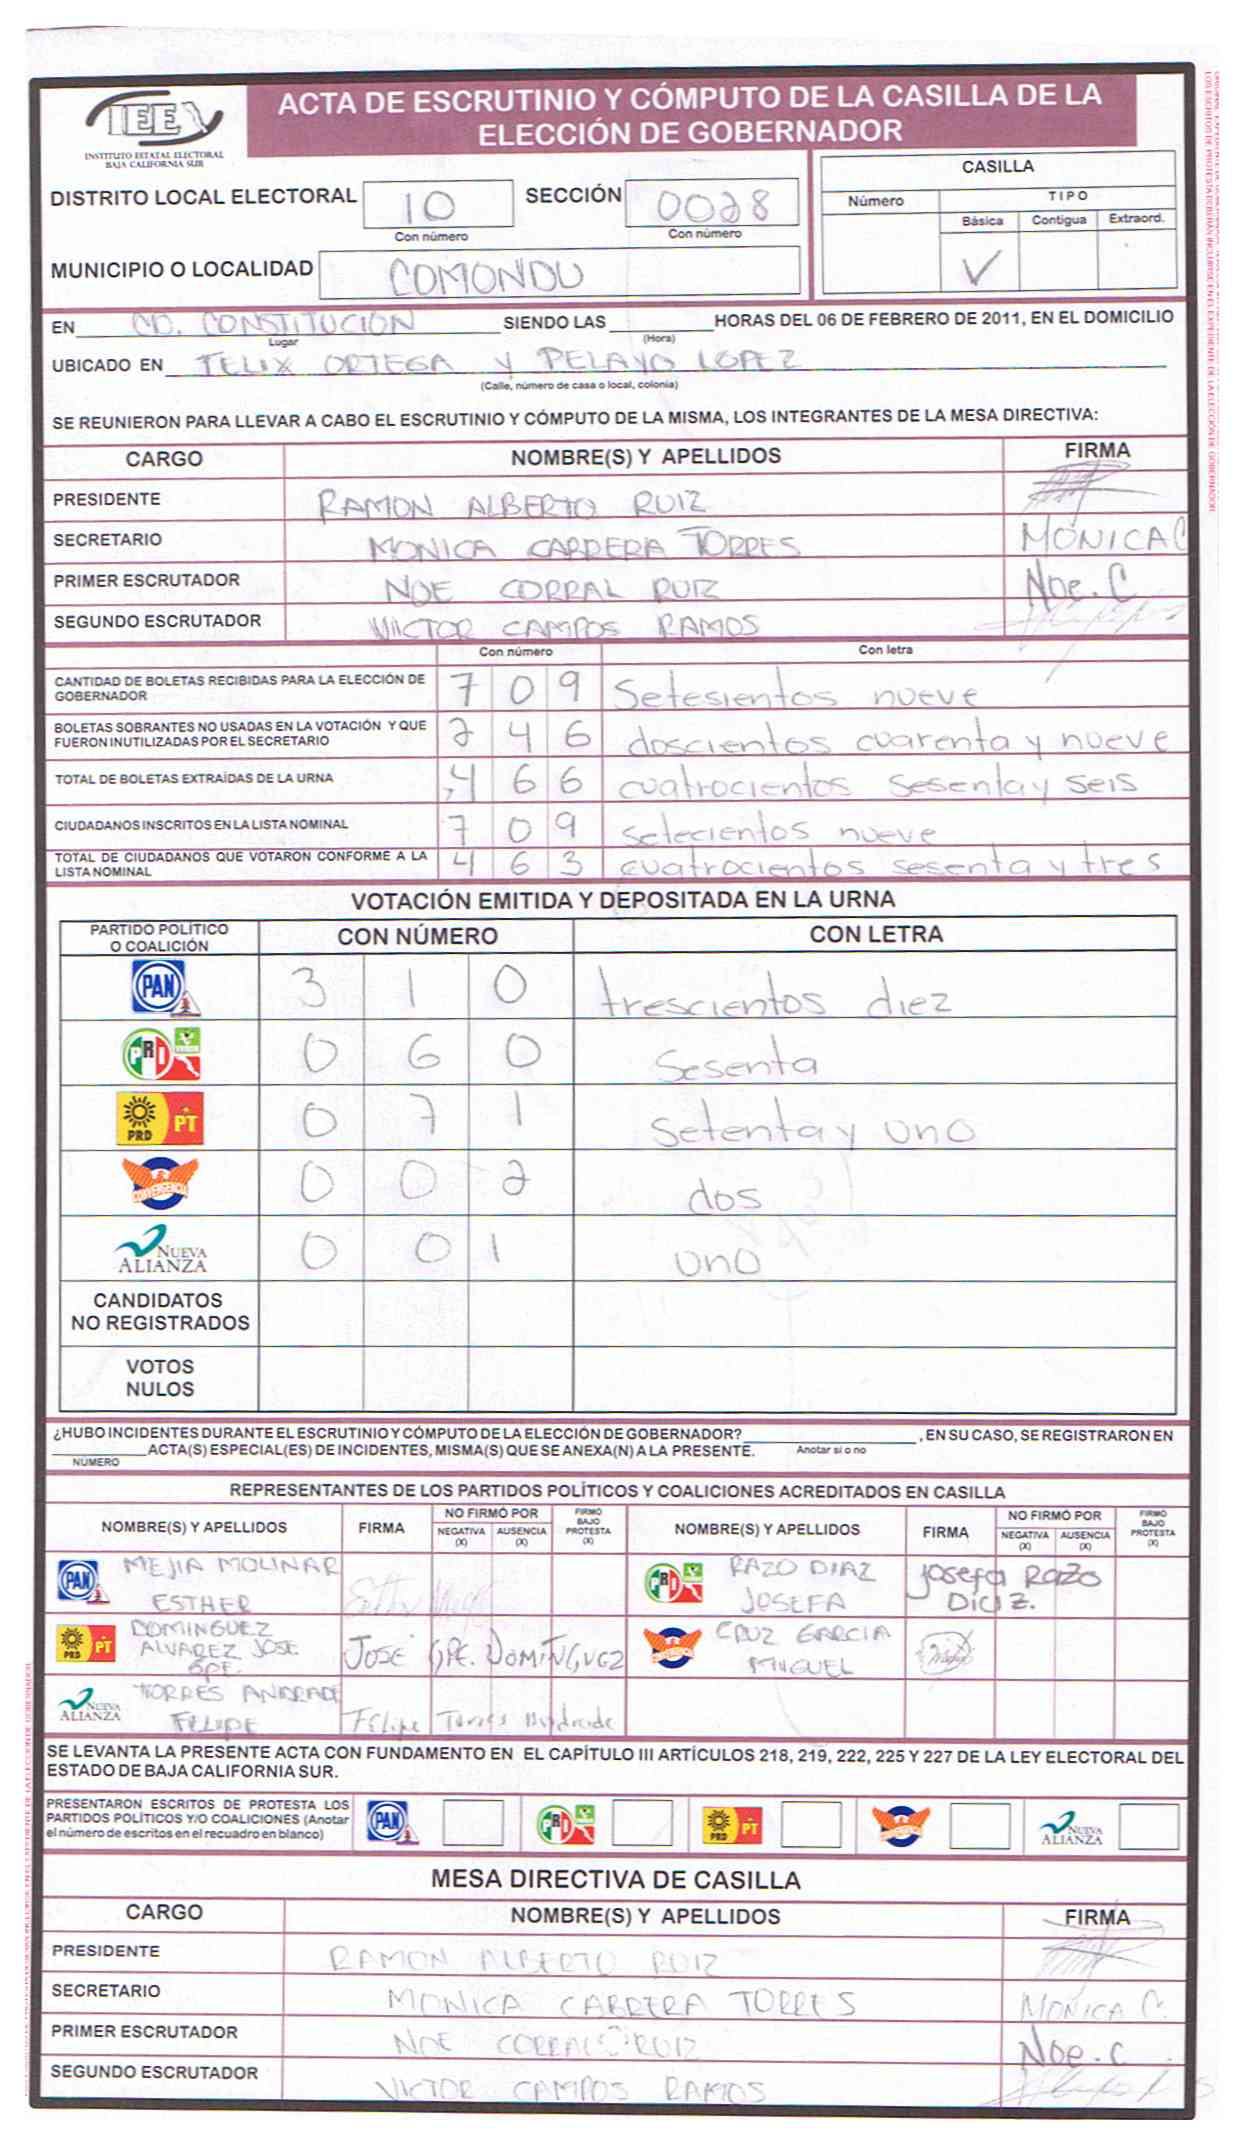 IEE
INSTITUTO ESTATAL ELECTORAL
BAJA CALIFORNIA SUR
ACTA DE ESCRUTINIO Y CÓMPUTO DE LA CASILLA DE LA
ELECCIÓN DE GOBERNADOR
DISTRITO LOCAL ELECTORAL 10 SECCIÓN 0028
Con número Con número
MUNICIPIO O LOCALIDAD COMONDU
CASILLA
Número TIPO
Básica Contigua Extraord.
✓
EN CD. CONSTITUCION SIENDO LAS HORAS DEL 06 DE FEBRERO DE 2011, EN EL DOMICILIO
Lugar (Hora)
UBICADO EN FELIX ORTEGA Y PELAYO LOPEZ
(Calle, número de casa o local, colonia)
SE REUNIERON PARA LLEVAR A CABO EL ESCRUTINIO Y CÓMPUTO DE LA MISMA, LOS INTEGRANTES DE LA MESA DIRECTIVA:
CARGO NOMBRE(S) Y APELLIDOS FIRMA
PRESIDENTE RAMON ALBERTO RUIZ
SECRETARIO MONICA CABRERA TORRES MONICA C
PRIMER ESCRUTADOR NOE CORRAL RUIZ Noe. C
SEGUNDO ESCRUTADOR VICTOR CAMPOS RAMOS
Con número Con letra
CANTIDAD DE BOLETAS RECIBIDAS PARA LA ELECCIÓN DE
GOBERNADOR 7 0 9 Setesientos nueve
BOLETAS SOBRANTES NO USADAS EN LA VOTACIÓN Y QUE
FUERON INUTILIZADAS POR EL SECRETARIO 2 4 6 doscientos cuarenta y nueve
TOTAL DE BOLETAS EXTRAÍDAS DE LA URNA 4 6 6 cuatrocientos sesenta y seis
CIUDADANOS INSCRITOS EN LA LISTA NOMINAL 7 0 9 setecientos nueve
TOTAL DE CIUDADANOS QUE VOTARON CONFORME A LA
LISTA NOMINAL 4 6 3 cuatrocientos sesenta y tres
VOTACIÓN EMITIDA Y DEPOSITADA EN LA URNA
PARTIDO POLÍTICO
O COALICIÓN CON NÚMERO CON LETRA
PAN 3 1 0 trescientos diez
PRI 0 6 0 Sesenta
PRD PT 0 7 1 Setenta y uno
CONVERGENCIA 0 0 2 dos
NUEVA ALIANZA 0 0 1 uno
CANDIDATOS
NO REGISTRADOS
VOTOS
NULOS
¿HUBO INCIDENTES DURANTE EL ESCRUTINIO Y CÓMPUTO DE LA ELECCIÓN DE GOBERNADOR? , EN SU CASO, SE REGISTRARON EN
ACTA(S) ESPECIAL(ES) DE INCIDENTES, MISMA(S) QUE SE ANEXA(N) A LA PRESENTE. Anotar si o no
NÚMERO
REPRESENTANTES DE LOS PARTIDOS POLÍTICOS Y COALICIONES ACREDITADOS EN CASILLA
NOMBRE(S) Y APELLIDOS FIRMA NO FIRMÓ POR NEGATIVA (X) AUSENCIA (X) FIRMÓ BAJO PROTESTA (X) NOMBRE(S) Y APELLIDOS FIRMA NO FIRMÓ POR NEGATIVA (X) AUSENCIA (X) FIRMÓ BAJO PROTESTA (X)
PAN MEJIA MOLINAR
ESTHER
PRI RAZO DIAZ
JOSEFA Josefa Razo
Diaz.
PRD PT DOMINGUEZ
ALVAREZ JOSE
GPE. JOSE GPE. DOMINGUEZ
CONVERGENCIA CRUZ GARCIA
MIGUEL
NUEVA ALIANZA TORRES ANDRADE
FELIPE Felipe Torres Andrade
SE LEVANTA LA PRESENTE ACTA CON FUNDAMENTO EN EL CAPÍTULO III ARTÍCULOS 218, 219, 222, 225 Y 227 DE LA LEY ELECTORAL DEL
ESTADO DE BAJA CALIFORNIA SUR.
PRESENTARON ESCRITOS DE PROTESTA LOS
PARTIDOS POLÍTICOS Y/O COALICIONES (Anotar
el número de escritos en el recuadro en blanco)
PAN PRI PRD PT CONVERGENCIA NUEVA ALIANZA
MESA DIRECTIVA DE CASILLA
CARGO NOMBRE(S) Y APELLIDOS FIRMA
PRESIDENTE RAMON ALBERTO RUIZ
SECRETARIO MONICA CABRERA TORRES MONICA C.
PRIMER ESCRUTADOR NOE CORRAL RUIZ Noe. C
SEGUNDO ESCRUTADOR VICTOR CAMPOS RAMOS